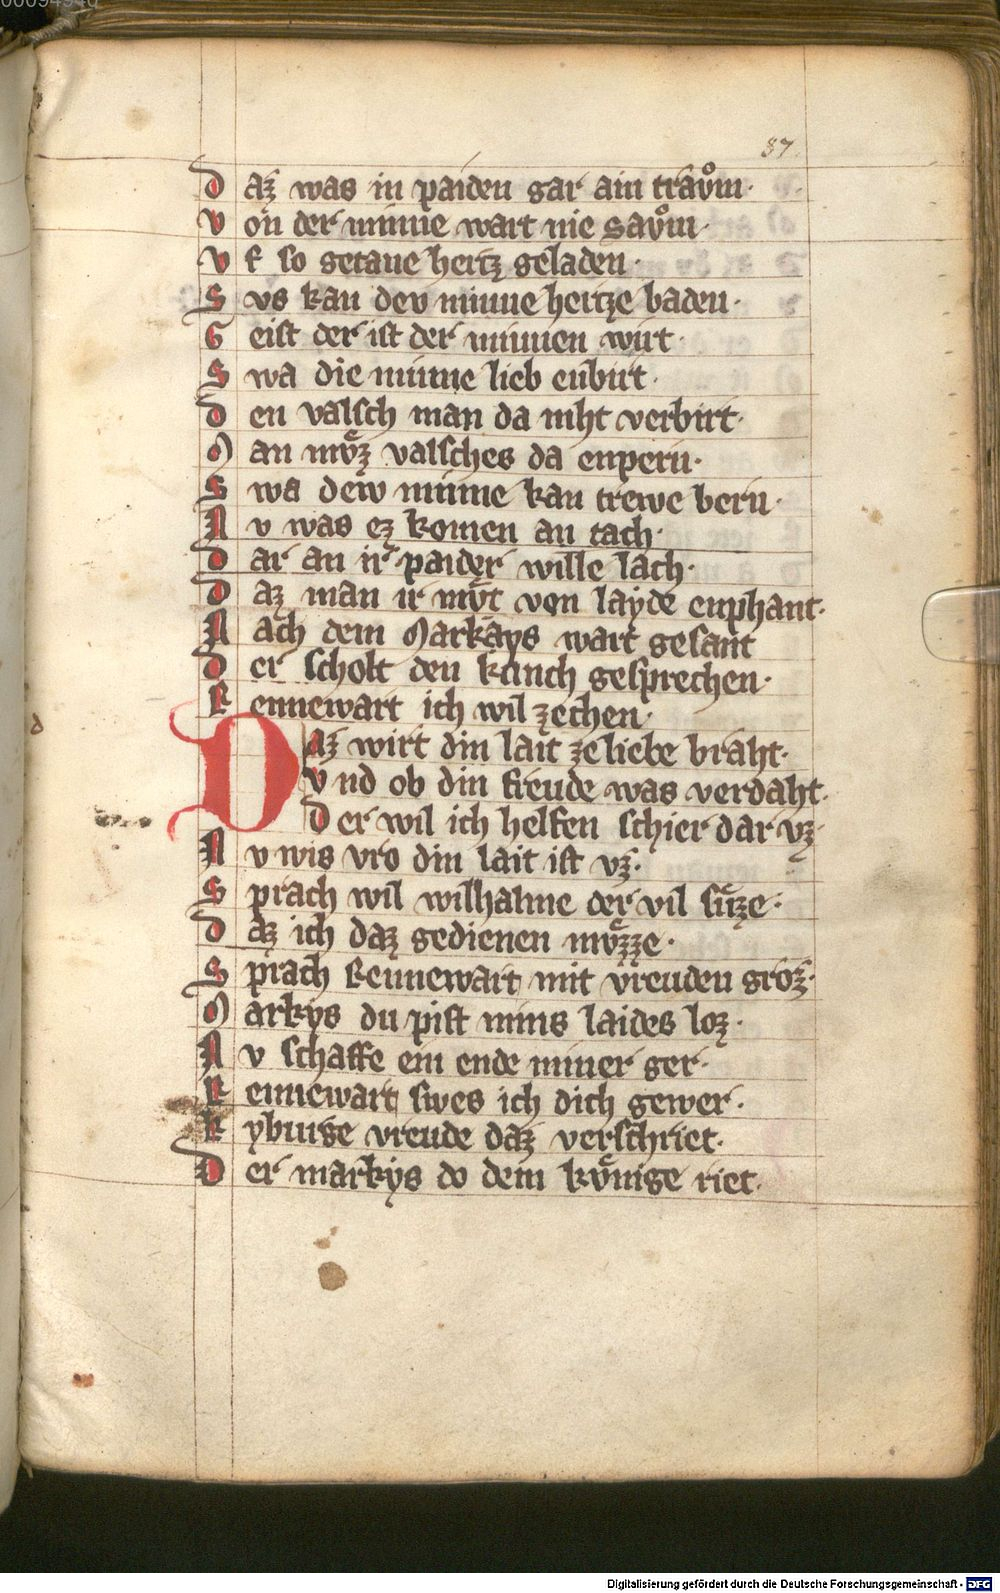 00094940
87
d aꝫ was in paiden gar ain travͦm·
v on der minne wart nie savͦm·
v f so getane hertꝫ geladen·
S vs kan dev minne hertꝫe baden·
G eist der ist der minnen wirt·
S wa die minne lieb enbirt·
d en valsch man da niht verbirt·
M an mvͤꝫ valsches da enpern·
S wa dew minne kan trewe bern·
N v was eꝫ komen an tach·
d ar an ir paider wille lach·
d aꝫ man ir mvͤt von layde enphant·
N ach dem Markays wart gesant
d er scholt den kunch gesprechen·
R ennewart ich wil ꝫechen·
D aꝫ wirt din lait ꝫe liebe braht·
v nd ob din freude was verdaht·
D er wil ich helfen schier dar vꝫ·
N v wis vro din lait ist vꝫ·
S prach wil wilhalme der vil sůꝫe·
d aꝫ ich daꝫ gedienen mvͤꝫꝫe·
S prach Rennewart mit vreuden groꝫ·
M arkys du pist mins laides loꝫ·
N v schaffe ein ende miner ger·
R ennewart swes ich dich gewer·
k yburge vreude daꝫ verschriet·
D er markys do dem kvͤnige riet·
d
Digitalisierung gefördert durch die Deutsche Forschungsgemeinschaft - DFG